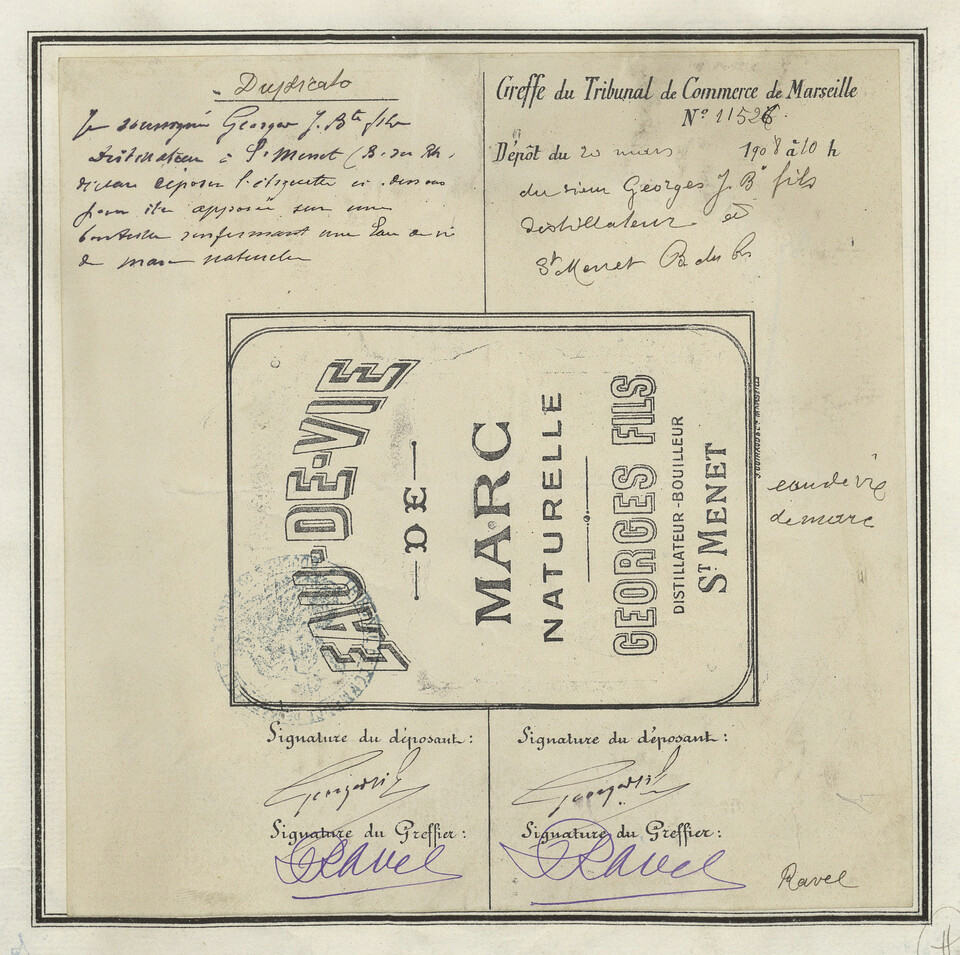 Duplicata
Je soussigné Georges J. Bte fils
Distillateur à St Menet (B. du Rh.
déclare déposer l'étiquette ci-dessous
pour être apposée sur une
bouteille renfermant une Eau de vie
de marc naturelle
Greffe du Tribunal de Commerce de Marseille
No 11526.
Dépôt du 20 mars 1908 à 10 h
du sieur Georges J. Bte fils
distillateur à
St Menet B. du Rh
EAU-DE-VIE
DE
MARC
NATURELLE
GEORGES FILS
DISTILLATEUR-BOUILLEUR
ST MENET
eau de vie
de marc
Signature du déposant:
Georges fils
Signature du Greffier:
Ravel
Signature du déposant:
Georges fils
Signature du Greffier:
Ravel
Ravel